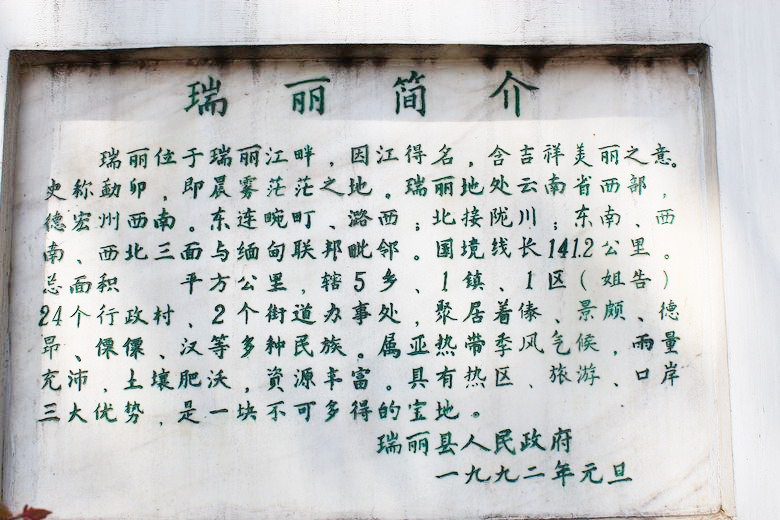 瑞丽简介
瑞丽位于瑞丽江畔，因江得名，含吉祥美丽之意。
史称勐卯，即晨雾茫茫之地。瑞丽地处云南省西部，
德宏州西南。东连畹町、潞西；北接陇川；东南、西
南、西北三面与缅甸联邦毗邻。国境线长141.2公里。
总面积 平方公里，辖5乡、1镇、1区（姐告）
24个行政村、2个街道办事处，聚居着傣、景颇、德
昂、傈僳、汉等多种民族。属亚热带季风气候，雨量
充沛，土壤肥沃，資源丰富。具有热区、旅游、口岸
三大优势，是一块不可多得的宝地。
瑞丽县人民政府
一九九二年元旦